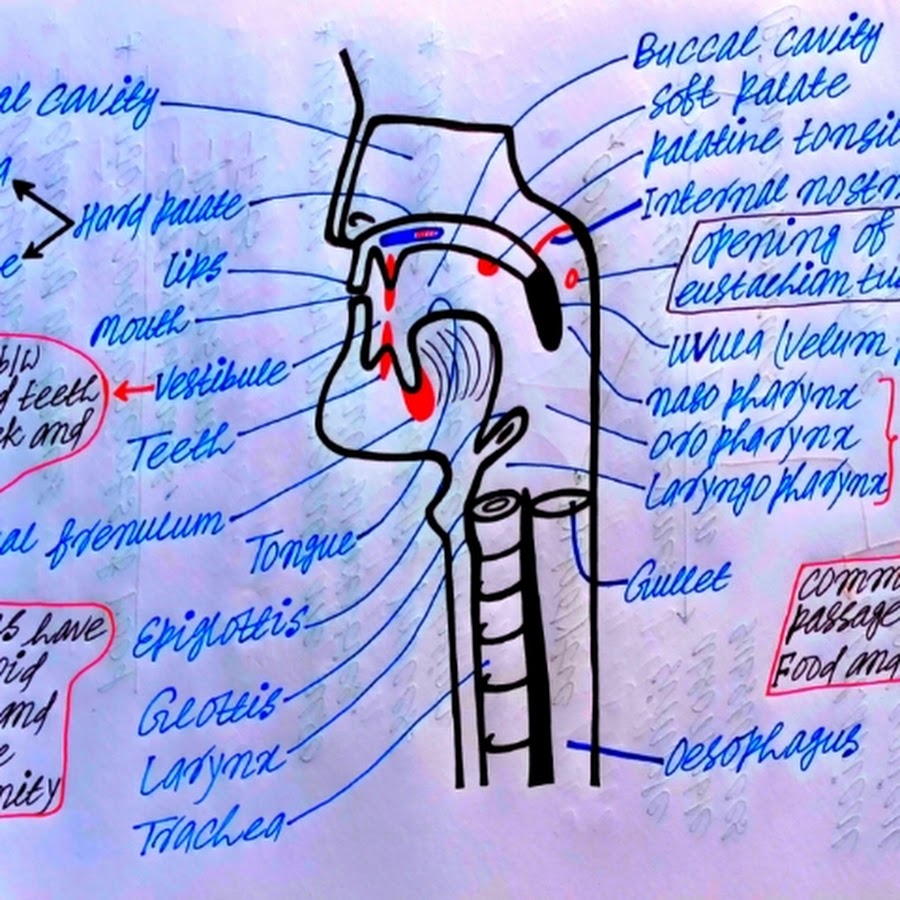 al cavity
Hard palate
Lips
Mouth
b/w
d teeth
ek and
Vestibule
Teeth
al frenulum
Tongue
Epiglottis
s have
oid
and
e
nity
Glottis
Larynx
Trachea
Buccal cavity
Soft palate
palatine tonsil
Internal nostr
opening of
eustachian tu
uvula (velum
naso pharynx
oro pharynx
Laryngo pharynx
Gullet
comm
passage
Food and
Oesophagus